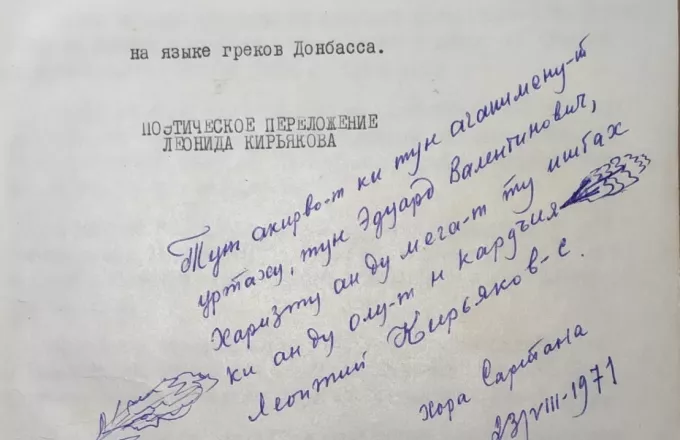 на языке греков Донбасса.
ПОЭТИЧЕСКОЕ ПЕРЕЛОЖЕНИЕ
ЛЕОНИДА КИРЬЯКОВА
Тут акирво-т ки тун агапимену-т
уртаху, тун Эдуард Валентинович,
Харизту ан ду мега-т ту ишбах
ки ан ду олу-т н кардъия
Леонтий Кирьяков-с.
Хора Сартана
23/VIII-1971